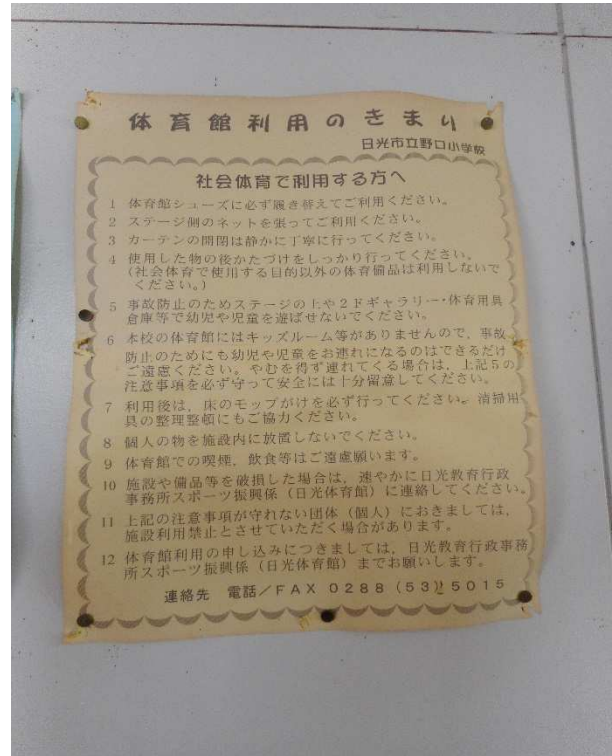 体育館利用のきまり
日光市立野口小学校
社会体育で利用する方へ
1 体育館シューズに必ず履き替えてご利用ください。
2 ステージ側のネットを張ってご利用ください。
3 カーテンの開閉は静かに丁寧に行ってください。
4 使用した物の後かたづけをしっかり行ってください。
(社会体育で使用する目的以外の体育備品は利用しないで
ください。)
5 事故防止のためステージの上や2ドギャラリー・体育用具
倉庫等で幼児や児童を遊ばせないでください。
6 本校の体育館にはキッズルーム等がありませんので、事故
防止のためにも幼児や児童をお連れになるのはできるだけ
ご遠慮ください。やむを得ず連れてくる場合は、上記5の
注意事項を必ず守って安全には十分留意してください。
7 利用後は、床のモップがけを必ず行ってください。清掃用
具の整理整頓にもご協力ください。
8 個人の物を施設内に放置しないでください。
9 体育館での喫煙、飲食等はご遠慮願います。
10 施設や備品等を破損した場合は、速やかに日光教育行政
事務所スポーツ振興係(日光体育館)に連絡してください。
11 上記の注意事項が守れない団体(個人)におきましては、
施設利用禁止とさせていただく場合があります。
12 体育館利用の申し込みにつきましては、日光教育行政事務
所スポーツ振興係(日光体育館)までお願いします。
連絡先 電話/FAX 0288(53)5015